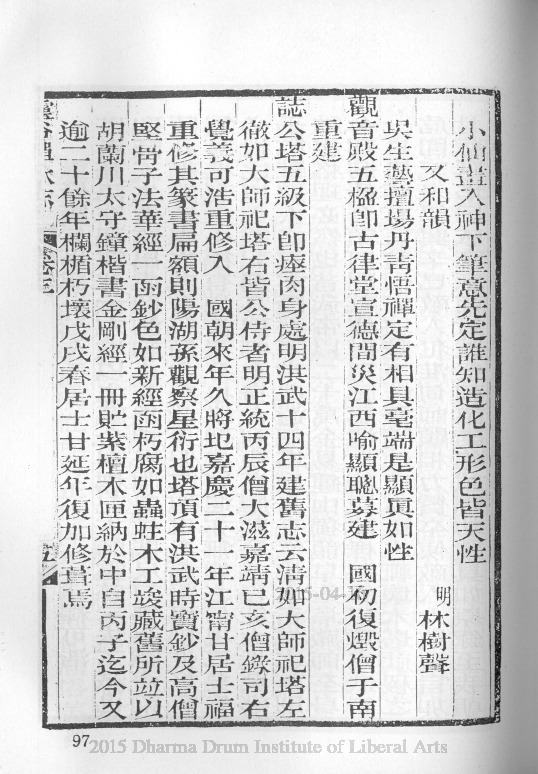 小仙畫入神下筆意先定誰知造化工形色皆天性
又和韻
明 林樹聲
吳生藝擅場丹靑悟禪定有相具毫端是顯眞如性
觀音殿五楹卽古律堂宣德間災江西喻顯聰募建 國初復燬僧于南
重建
誌公塔五級下卽瘞肉身處明洪武十四年建舊志云清如大師祀塔左
徹如大師祀塔右皆公侍者明正統丙辰僧大滋嘉靖己亥僧錄司右
覺義可浩重修入 國朝來年久將圮嘉慶二十一年江甯甘居士福
重修其篆書扁額則陽湖孫觀察星衍也塔頂有洪武時寶鈔及高僧
堅骨子法華經一函鈔色如新經函朽腐如蟲蛀木工竣藏舊所並以
胡蘭川太守鐘楷書金剛經一冊貯紫檀木匣納於中自丙子迄今又
逾二十餘年欄楯朽壞戊戌春居士甘延年復加修葺焉
五
97
2015 Dharma Drum Institute of Liberal Arts